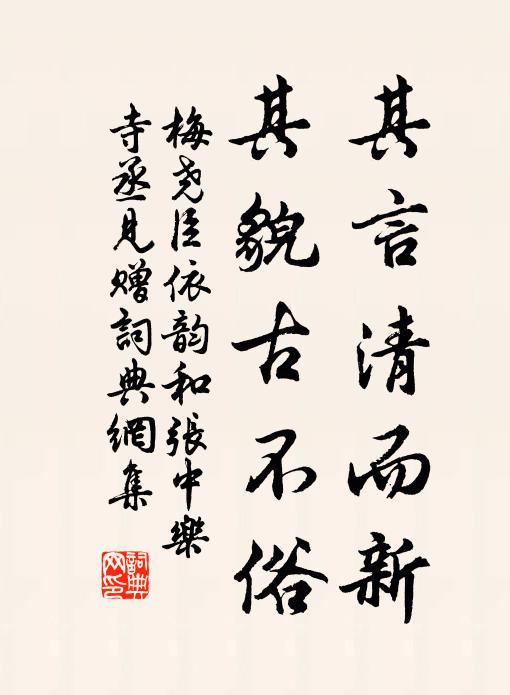 其言清而新
其貌古不俗
梅尧臣依韵和張中樂
寺丞見贈詞典網集
詞典网印